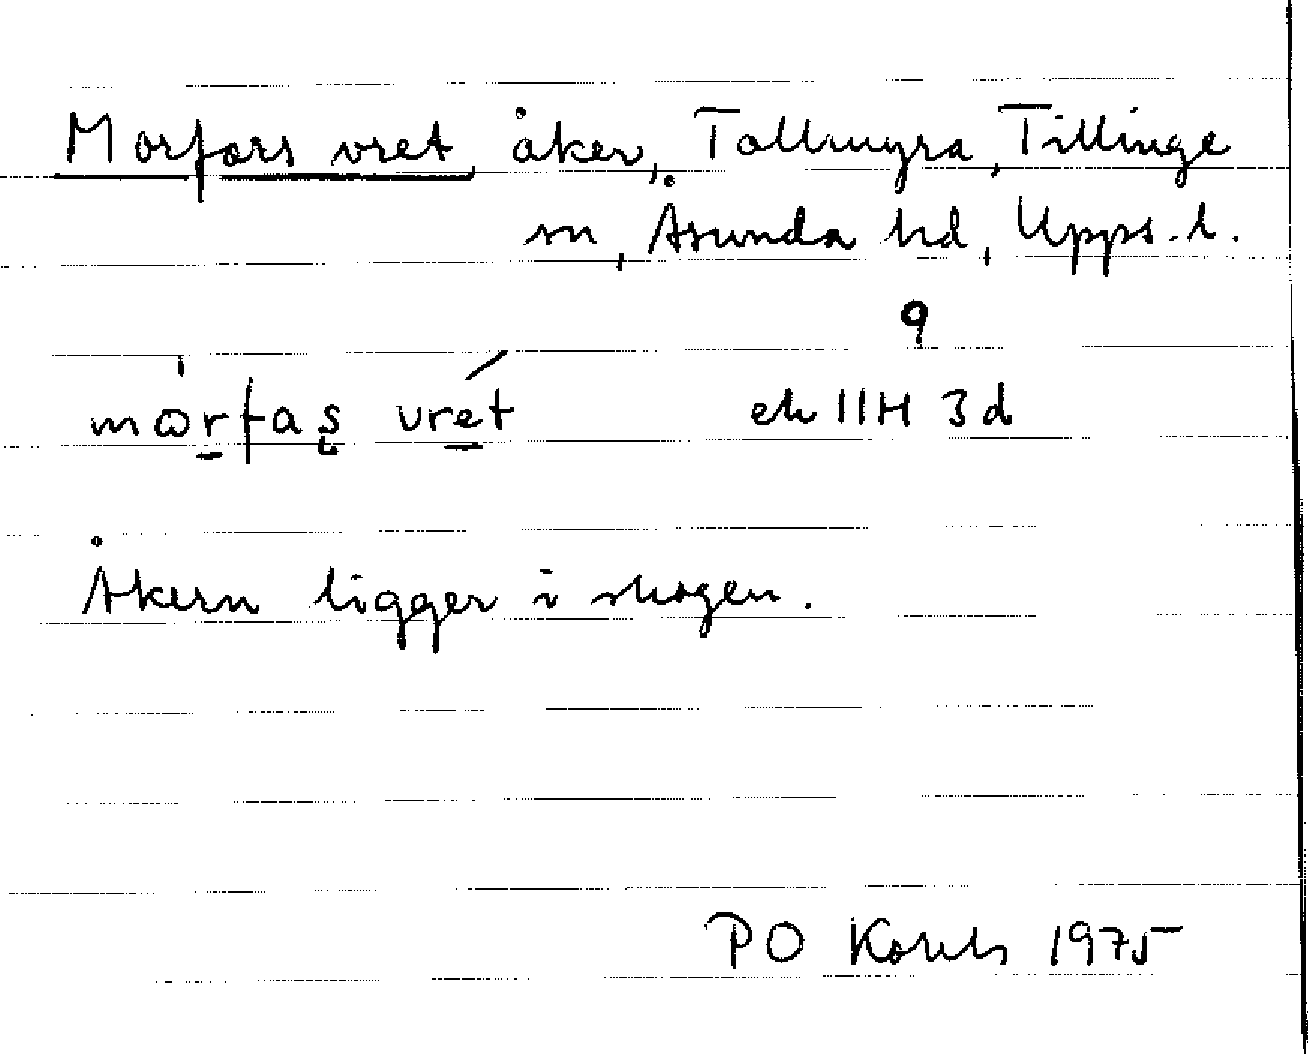 Morfars vret, åker, Tallmyra, Tillinge
sn, Åsunda hd, Upps. l.
9
vret ek 11H 3d
Åkern ligger i skogen.
PO 1975